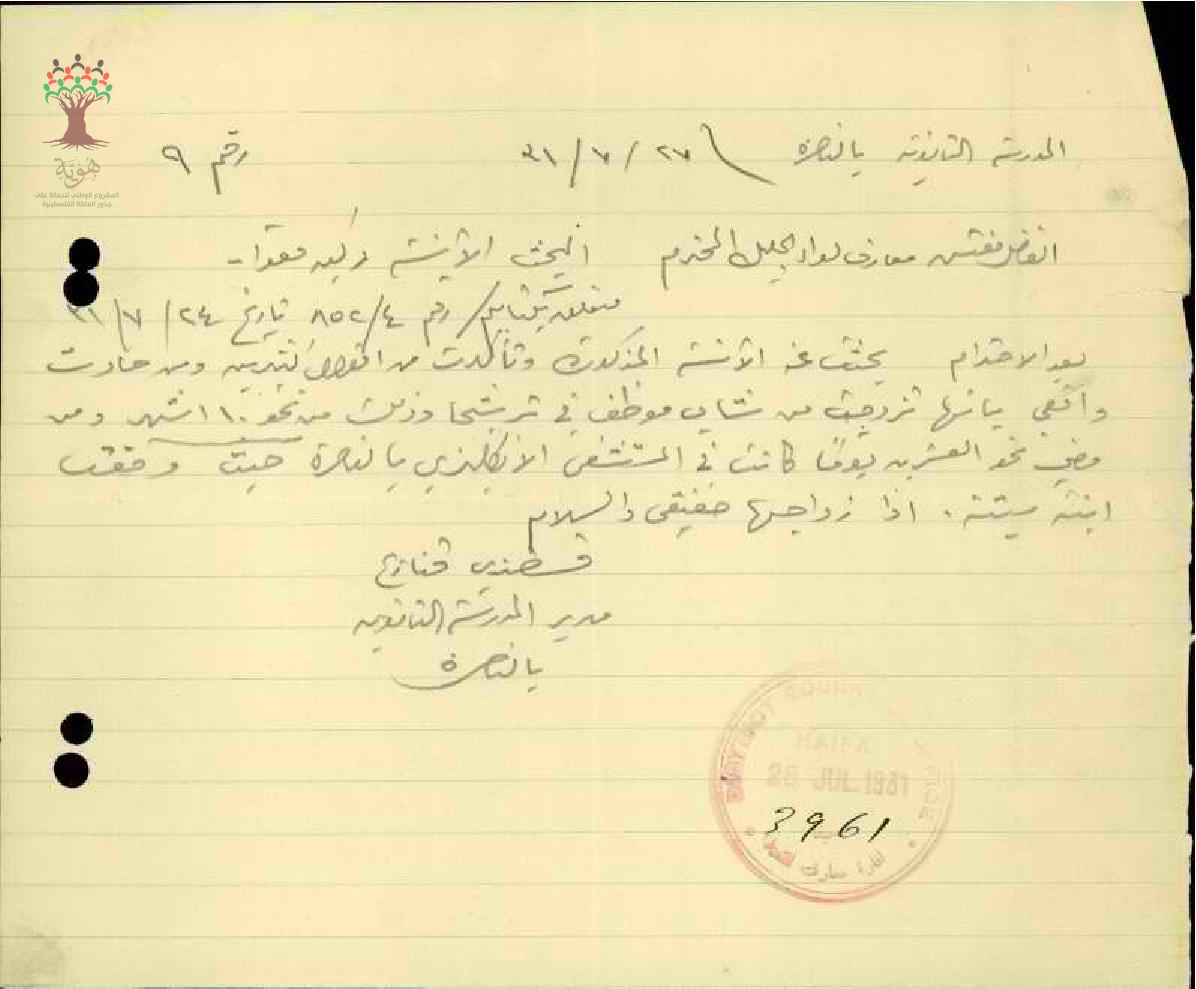 هوية
المشروع الوطني للحفاظ على
جذور العائلة الفلسطينية
المدرسة الثانوية بالناصرة ٢٧/٧/٣١ رقم ٩
مفتش معارف لواء الجليل المحترم الآنسة
رقم ٨٥٢/٤ تاريخ ٢٤/٧/٣١
بعد الاحترام بحثت عن الآنسة المذكورة وتأكدت من اقوال كثيرين ومن حادث
واقعي بانها تزوجت من شاب موظف في ترشيحا وذلك من نحو ١٠ اشهر ومن
مضي نحو العشرين يوما كانت في المستشفى الانكليزي بالناصرة حيث وضعت
ابنة ميتة. اذا زواجها حقيقي والسلام
قسطندي قنازع
مدير المدرسة الثانوية
بالناصرة
HAIFA
28 JUL 1931
3961
ادارة معارف